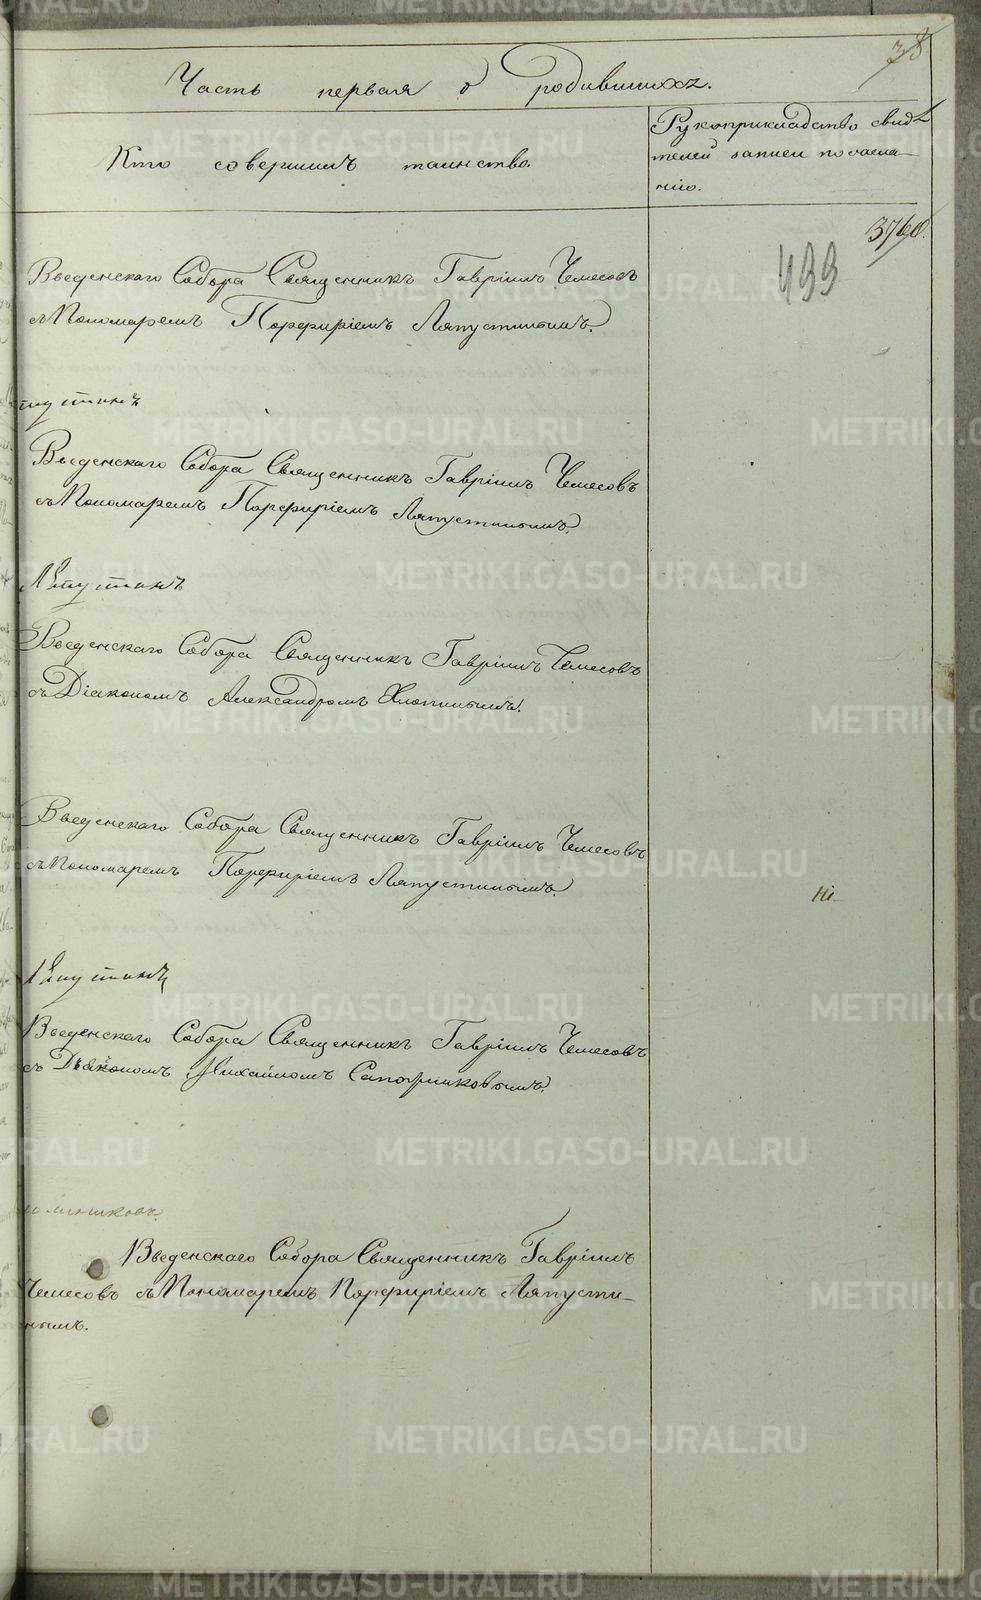 38
Часть первая о родившихся.
Кто совершилъ таинство.
Рукоприкладство свидѣ-
телей записи по жела-
нію.
499
Введенскаго Собора Священникъ Гавріилъ Чемесовъ
съ Пономаремъ Порфиріемъ Ляпустинымъ.
Введенскаго Собора Священникъ Гавріилъ Чемесовъ
съ Пономаремъ Порфиріемъ Ляпустинымъ.
Введенскаго Собора Священникъ Гавріилъ Чемесовъ
съ Діакономъ Александромъ Хлопинымъ.
Введенскаго Собора Священникъ Гавріилъ Чемесовъ
съ Пономаремъ Порфиріемъ Ляпустинымъ.
Введенскаго Собора Священникъ Гавріилъ Чемесовъ
съ Діакономъ Михаиломъ Сапожниковымъ.
Введенскаго Собора Священникъ Гавріилъ
Чемесовъ съ Пономаремъ Порфиріемъ Ляпусти-
нымъ.
METRIKI.GASO-URAL.RU